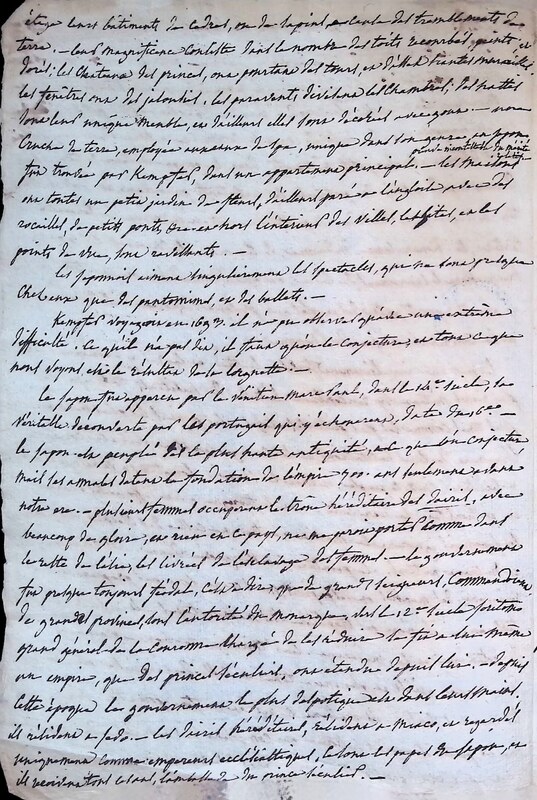 leurs bâtiments de cèdres, ou de sapins, à cause des tremblements de
terre. — leur magnificence consiste dans le nombre des toits recourbés, peints et
dorés; les châteaux des princes, ont pourtant des tours, et d'assez hautes murailles.
les fenêtres ont des jalousies, les paravents divisent les chambres, des nattes
sont leur unique meuble, et d'ailleurs elles sont décorées avec gout. — une
cruche de terre, employée unique dans son genre, au japon,
fut trouvée par Kempfer, dans un appartement principal. — les maisons
ont toutes un petit jardin de fleurs, d'ailleurs paré à l'angloise avec des
rocailles, de petits ponts, et en hors l'intérieur des villes, les sites, et les
points de vue, sont ravissants. —
les japonnais aiment singulièrement les spectacles, qui ne sont presque
chez eux que des pantomimes, et des ballets. —
Kempfer voyageoit en 1693. il n'a pu observer qu'avec une extrême
difficulté. ce qu'il n'a pas dit, il faut qu'on le conjecture, et tout ce que
nous voyons, est le résultat de la lorgnette. —
le japon fut apperçu par le vénitien Marc Paul, dans le 14e siècle, sa
véritable découverte par les portugais qui y échouèrent, date du 16me —
le japon est peuplé dès la plus haute antiquité, à ce que l'on conjecture
mais ses annales datent la fondation de l'empire 700. ans seulement avant
notre ere. — plusieurs femmes occupèrent le trône héréditaire des dairis, avec
beaucoup de gloire, et rien en ce pays, ne me paroit porter comme dans
le reste de l'asie, les livrées de l'esclavage des femmes. — le gouvernement
fut presque toujours féodal, c'est à dire, que de grands seigneurs, commandoient
de grandes provinces, sous l'autorité du monarque, vers le 12e siècle joritomo
grand général de la couronne chargé de les réduire se fit à lui même
un empire, que des princes séculiers, ont étendu depuis lui. — depuis
cette époque le gouvernement le plus despotique est dans leurs mains.
ils résident à jedo. — les dairis héréditaires, résident à Miaco, et regardés
uniquement comme empereurs ecclésiastiques, ce sont les papes du japon, et
ils reçoivent tous les ans, l'ambassade du prince séculier. —